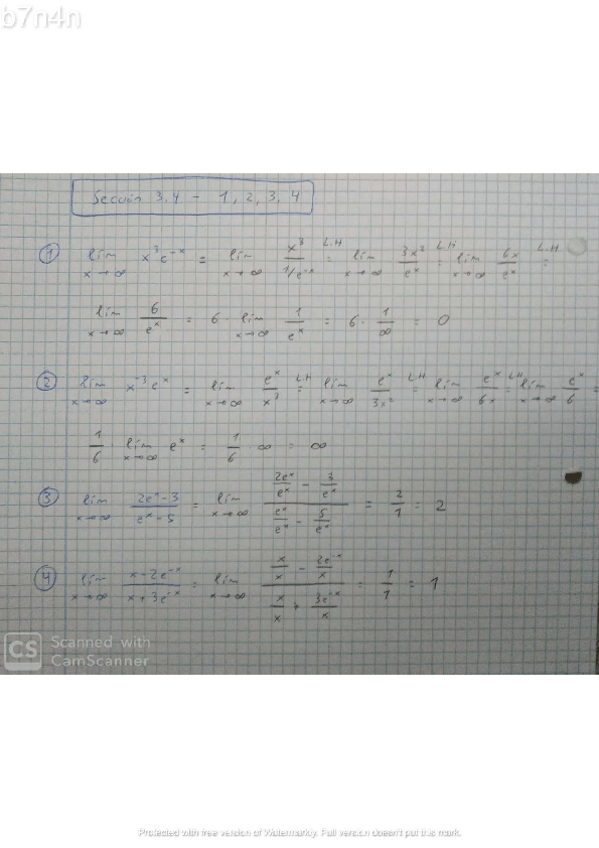 b7n4n
Sección 3.4 - 1, 2, 3, 4
① lim x→∞ x³e⁻ˣ = lim x→∞ x³/(1/e⁻ˣ) L.H = lim x→∞ 3x²/eˣ L.H = lim x→∞ 6x/eˣ L.H =
lim x→∞ 6/eˣ = 6 · lim x→∞ 1/eˣ = 6 · 1/∞ = 0
② lim x→∞ x⁻³eˣ = lim x→∞ eˣ/x³ L.H = lim x→∞ eˣ/3x² L.H = lim x→∞ eˣ/6x L.H = lim x→∞ eˣ/6 =
1/6 · lim x→∞ eˣ = 1/6 · ∞ = ∞
③ lim x→∞ (2eˣ-3)/(eˣ-5) = lim x→∞ (2eˣ/eˣ - 3/eˣ)/(eˣ/eˣ - 5/eˣ) = 2/1 = 2
④ lim x→∞ (x-2e⁻ˣ)/(x+3e⁻ˣ) = lim x→∞ (x/x - 2e⁻ˣ/x)/(x/x + 3e⁻ˣ/x) = 1/1 = 1
CS Scanned with
CamScanner
Protected with free version of Watermarkly. Full version doesn't put this mark.